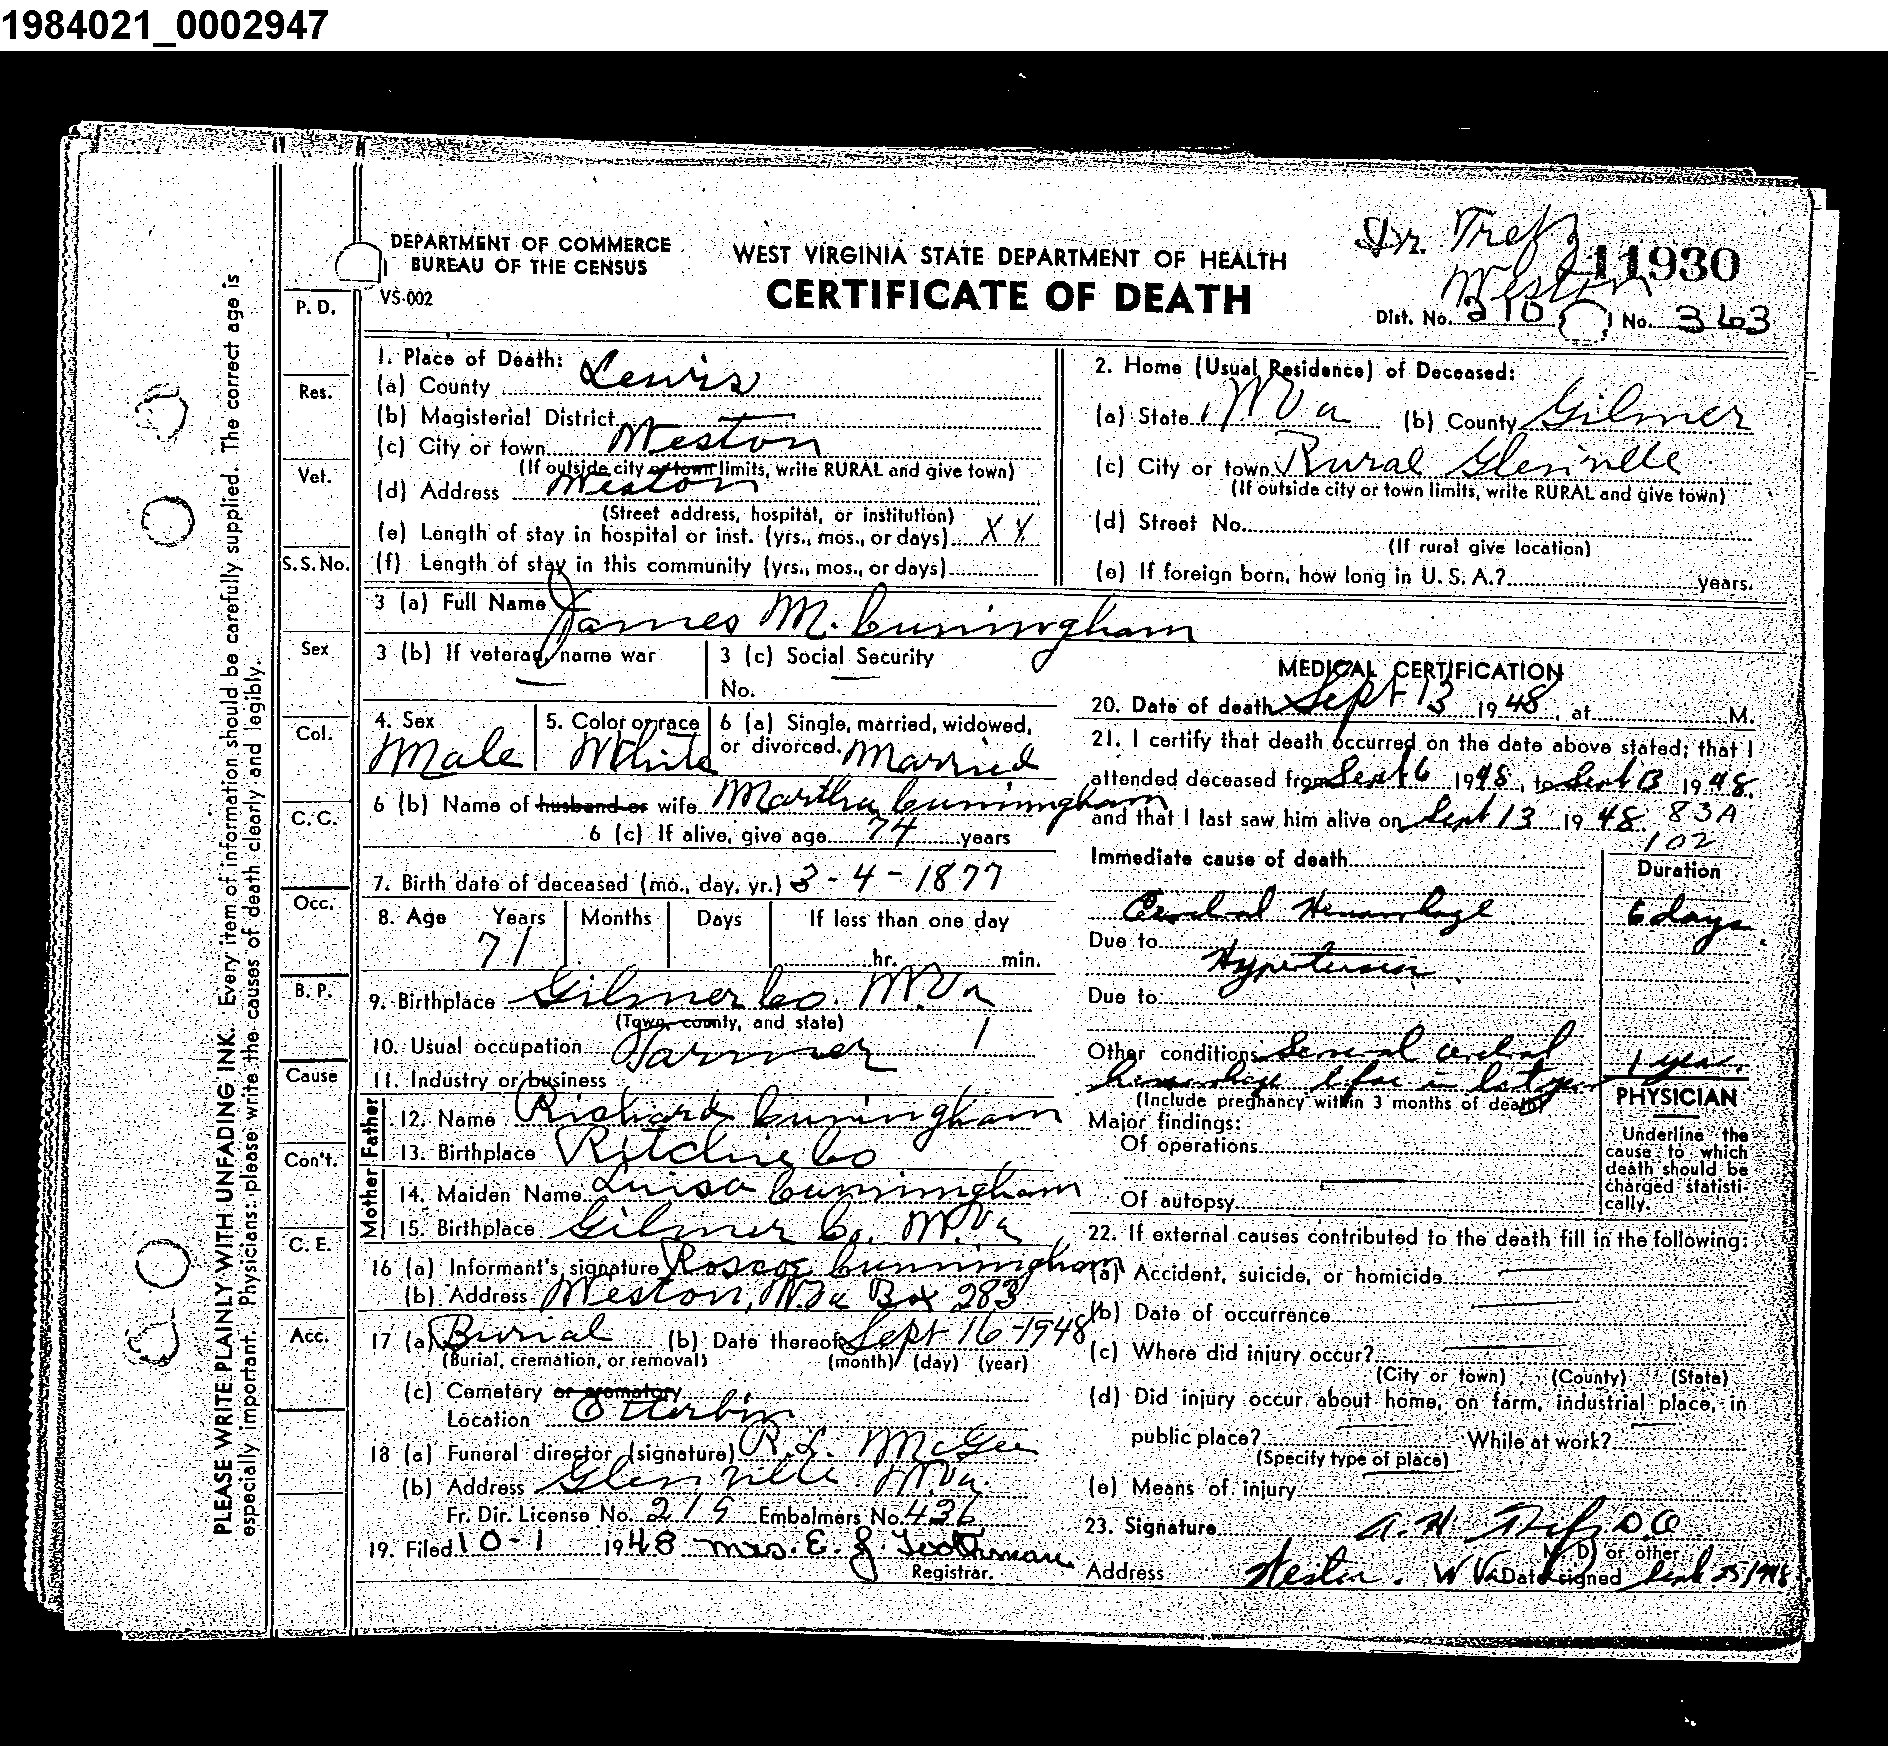 1984021_0002947
DEPARTMENT OF COMMERCE
BUREAU OF THE CENSUS
VS-002
WEST VIRGINIA STATE DEPARTMENT OF HEALTH
CERTIFICATE OF DEATH
Dr. Trefz
Weston
11930
Dist. No. 210 No. 363
PLEASE WRITE PLAINLY WITH UNFADING INK. Every item of information should be carefully supplied. The correct age is
especially important. Physicians: please write the causes of death clearly and legibly.
P. D.
Res.
Vet.
S. S. No.
Sex
Col.
C. C.
Occ.
B. P.
Cause
Con't.
C. E.
Acc.
1. Place of Death:
(a) County Lewis
(b) Magisterial District
(c) City or town Weston
(If outside city or town limits, write RURAL and give town)
(d) Address Weston
(Street address, hospital, or institution)
(e) Length of stay in hospital or inst. (yrs., mos., or days) X X
(f) Length of stay in this community (yrs., mos., or days)
2. Home (Usual Residence) of Deceased:
(a) State W Va (b) County Gilmer
(c) City or town Rural Glenville
(If outside city or town limits, write RURAL and give town)
(d) Street No.
(If rural give location)
(e) If foreign born, how long in U. S. A.? years.
3 (a) Full Name James M. Cuningham
3 (b) If veteran, name war —
3 (c) Social Security
No. —
4. Sex Male
5. Color or race White
6 (a) Single, married, widowed,
or divorced. Married
6 (b) Name of husband or wife Martha Cuningham
6 (c) If alive, give age 74 years
7. Birth date of deceased (mo., day, yr.) 3 - 4 - 1877
8. Age Years Months Days If less than one day
71 hr. min.
9. Birthplace Gilmer Co. W. Va
(Town, county, and state)
10. Usual occupation Farmer 1
11. Industry or business
Father
12. Name Richard Cuningham
13. Birthplace Ritchie Co
Mother
14. Maiden Name Luisa Cunningham
15. Birthplace Gilmer Co. W. Va
16 (a) Informant's signature Roscoe Cunningham
(b) Address Weston, W. Va Box 283
17 (a) Burial (b) Date thereof Sept 16-1948
(Burial, cremation, or removal) (month) (day) (year)
(c) Cemetery or crematory
Location Otterbin
18 (a) Funeral director (signature) R. L. McGee
(b) Address Glenville W. Va.
Fr. Dir. License No. 219 Embalmers No. 436
19. Filed 10-1 1948 Mrs. E. J. Toothman
Registrar.
MEDICAL CERTIFICATION
20. Date of death Sept 13 1948, at M.
21. I certify that death occurred on the date above stated; that I
attended deceased from Sept 6 1948, to Sept 13 1948.
and that I last saw him alive on Sept 13 1948. 83A
102
Immediate cause of death Duration
Cerebral Hemorrhage 6 days
Due to
Hypertension
Due to
Other conditions Several cerebral 1 year.
hemorrhage before in last year
(Include pregnancy within 3 months of death)
Major findings:
Of operations
Of autopsy —
PHYSICIAN
Underline the
cause to which
death should be
charged statisti-
cally.
22. If external causes contributed to the death fill in the following:
(a) Accident, suicide, or homicide —
(b) Date of occurrence —
(c) Where did injury occur? —
(City or town) (County) (State)
(d) Did injury occur about home, on farm, industrial place, in
public place? — While at work? —
(Specify type of place)
(e) Means of injury —
23. Signature A. H. Trefz D.O
M. D. or other
Address Weston. W Va Date signed Sept 25 1948